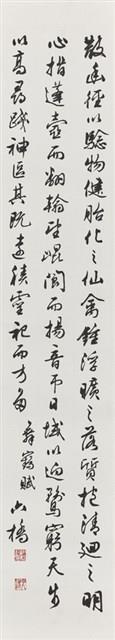 散幽經以驗物偉胎化之仙禽鍾浮曠之藻質抱清迥之明
心指蓬壺而翻翰望崐閬而揚音帀日域以迴騖窮天步
以高尋踐神區其既遠積靈祀而方多
舞鶴賦
山橋